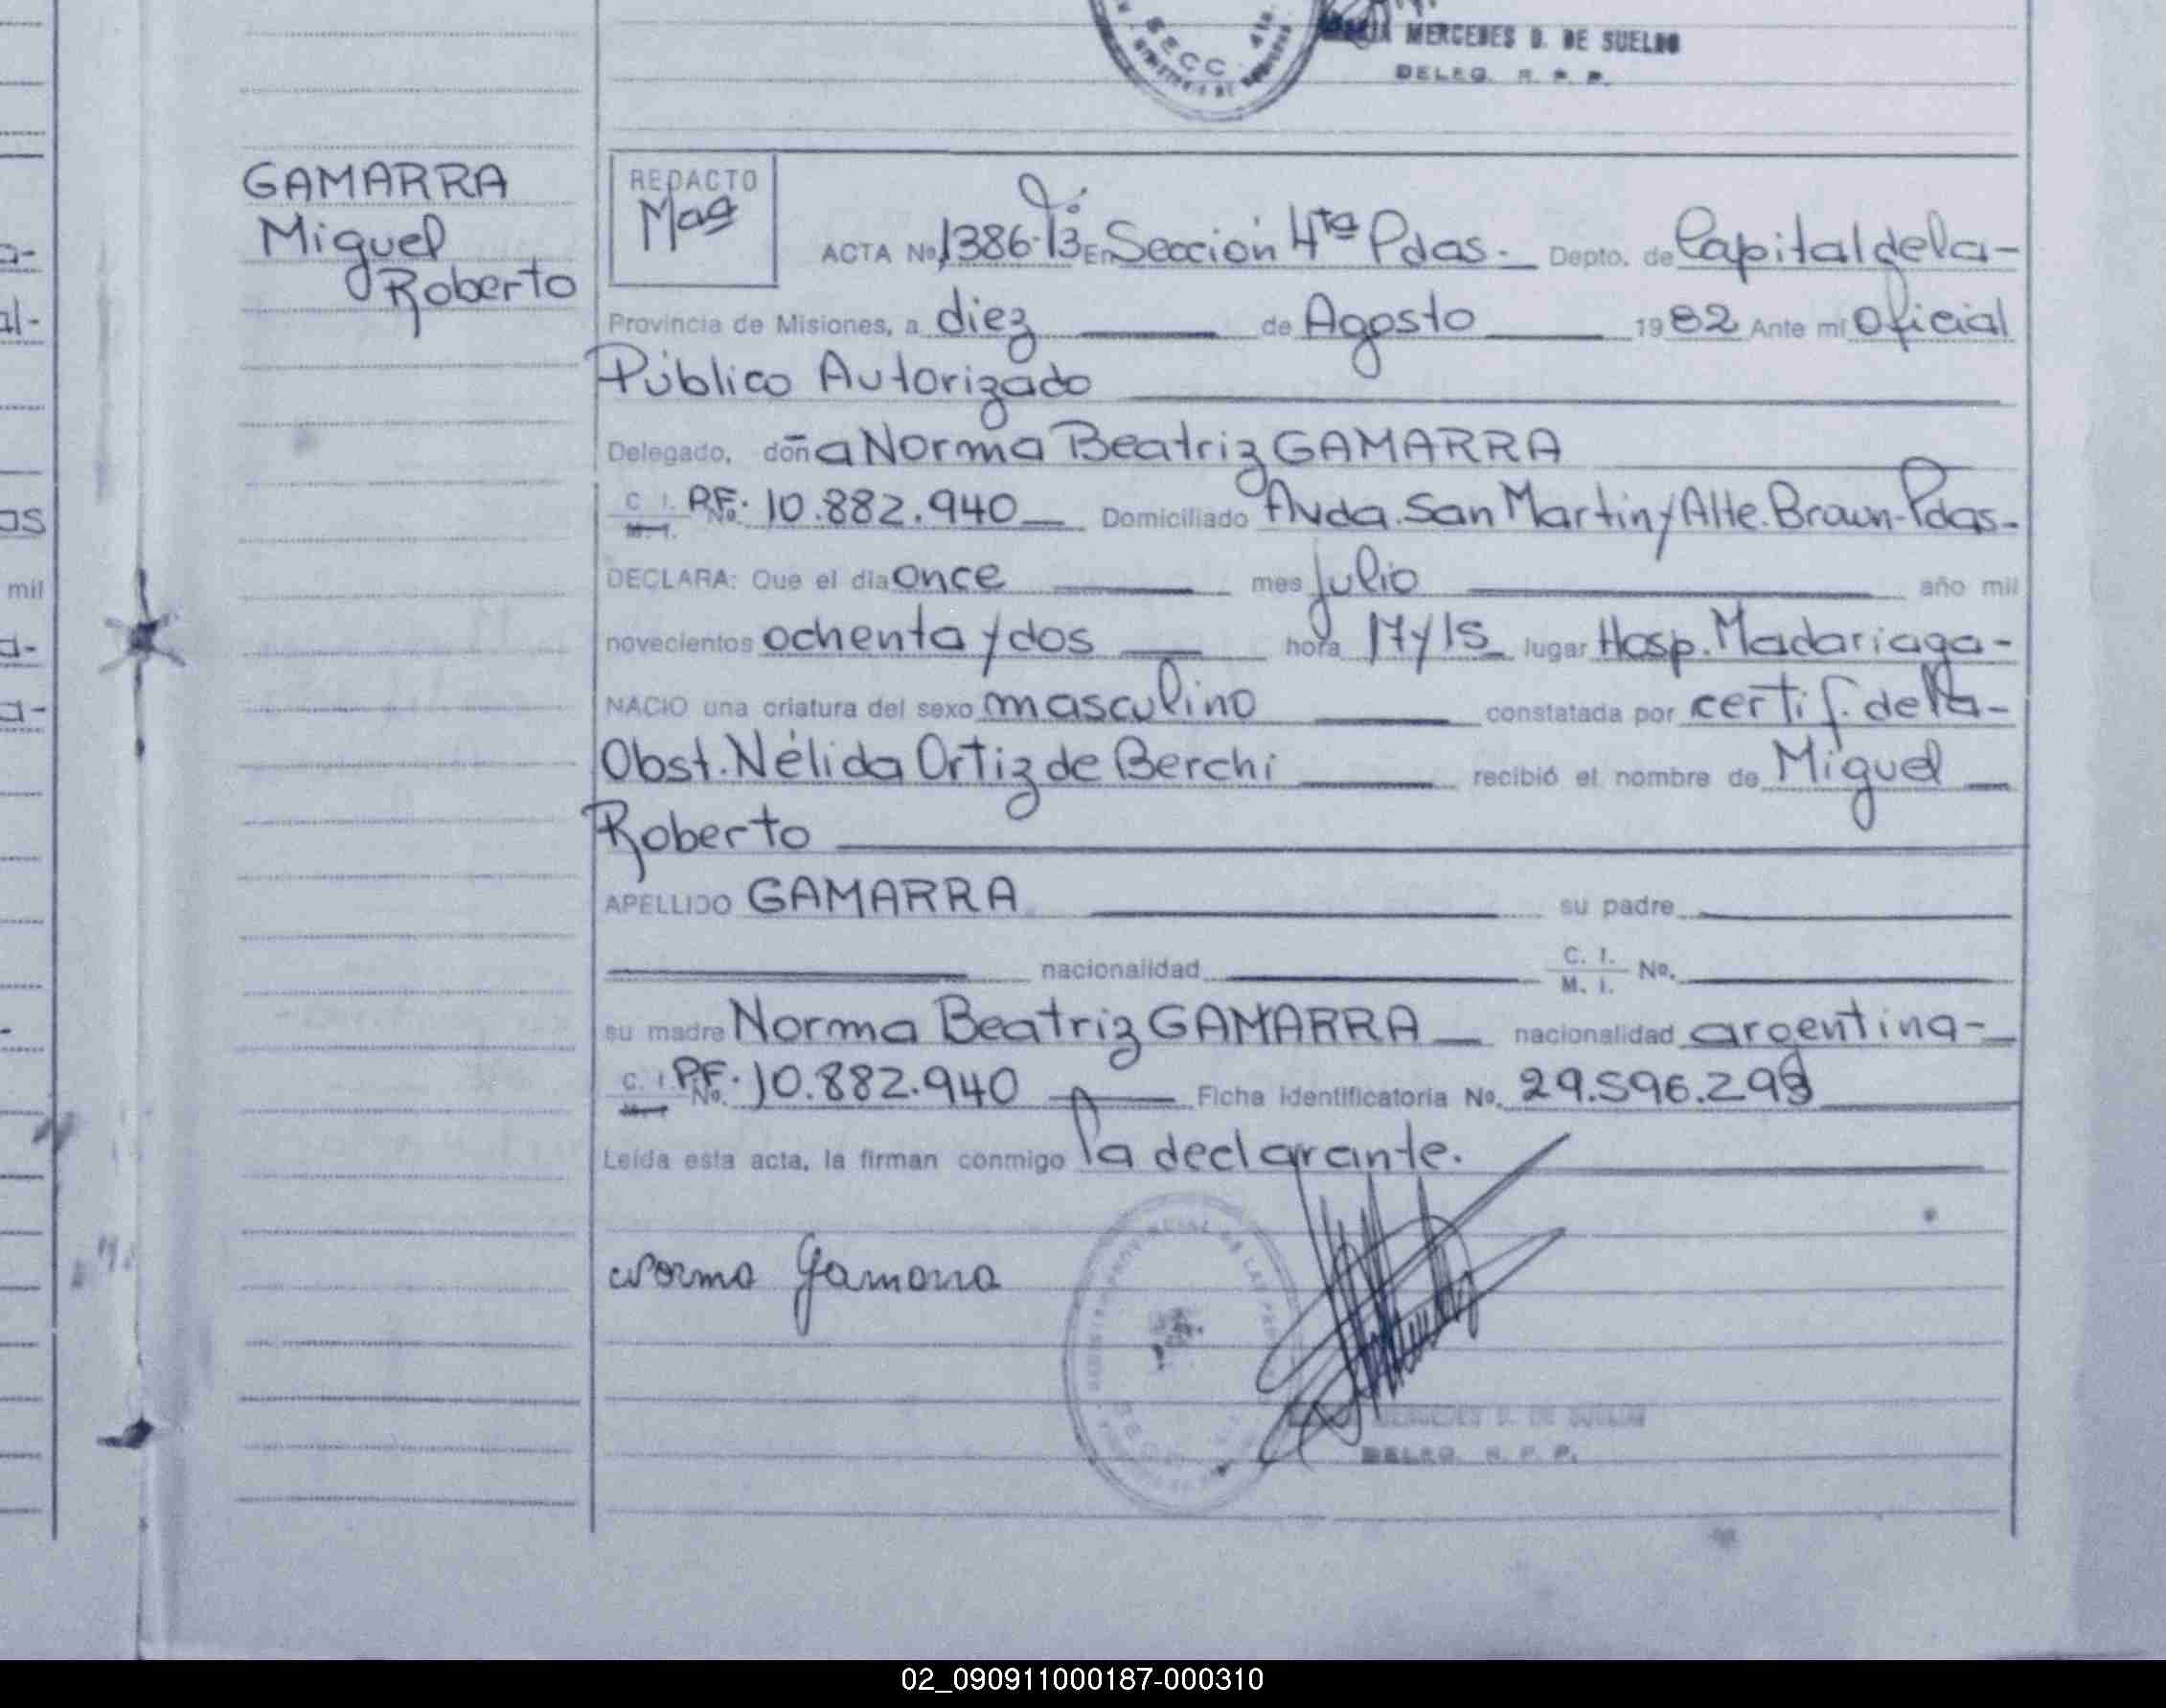 MERCEDES D. DE SUELDO
DELEG. R. P. P.
SECC. 4ta.
GAMARRA
Miguel
Roberto
REDACTO
Mag
ACTA No. 1386-Tº13 En Sección 4ta Pdas.- Depto. de Capital de la-
Provincia de Misiones, a diez de Agosto 1982 Ante mí Oficial
Público Autorizado
Delegado, doña Norma Beatriz GAMARRA
C. I. M. I. P.F. No. 10.882.940 Domiciliado Avda. San Martin y Alte. Brown-Pdas-
DECLARA: Que el día once mes Julio año mil
novecientos ochenta y dos hora 17 y 15 lugar Hosp. Madariaga-
NACIO una criatura del sexo masculino constatada por certif. de la-
Obst. Nélida Ortiz de Berchi recibió el nombre de Miguel
Roberto
APELLIDO GAMARRA su padre
nacionalidad C. I. M. I. No.
su madre Norma Beatriz GAMARRA nacionalidad argentina-
C. I. P.F. No. 10.882.940 Ficha identificatoria No. 29.596.298
Leída esta acta, la firman conmigo la declarante.
Norma Gamarra
MERCEDES D. DE SUELDO
DELEG. R. P. P.
02_090911000187-000310